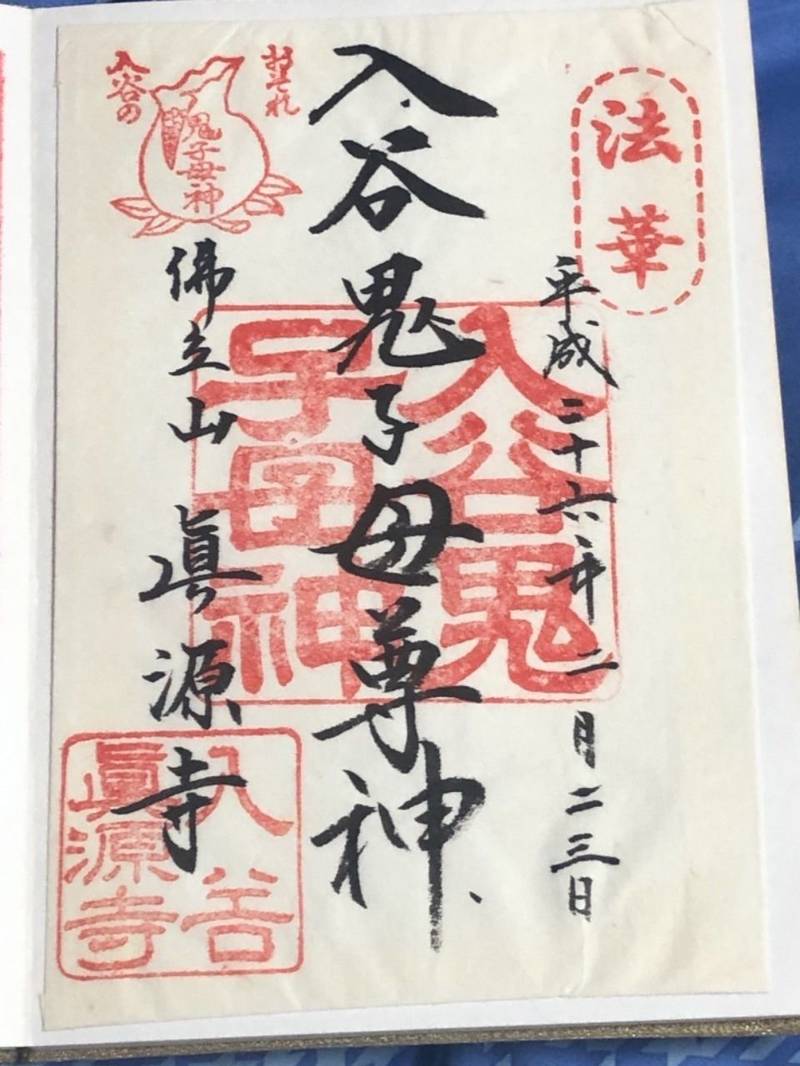 法華
平成二十六年二月二三日
入谷鬼子母尊神
入谷鬼
子母神
おそれ
入谷の
鬼子母神
佛立山 眞源寺
入谷
眞源寺